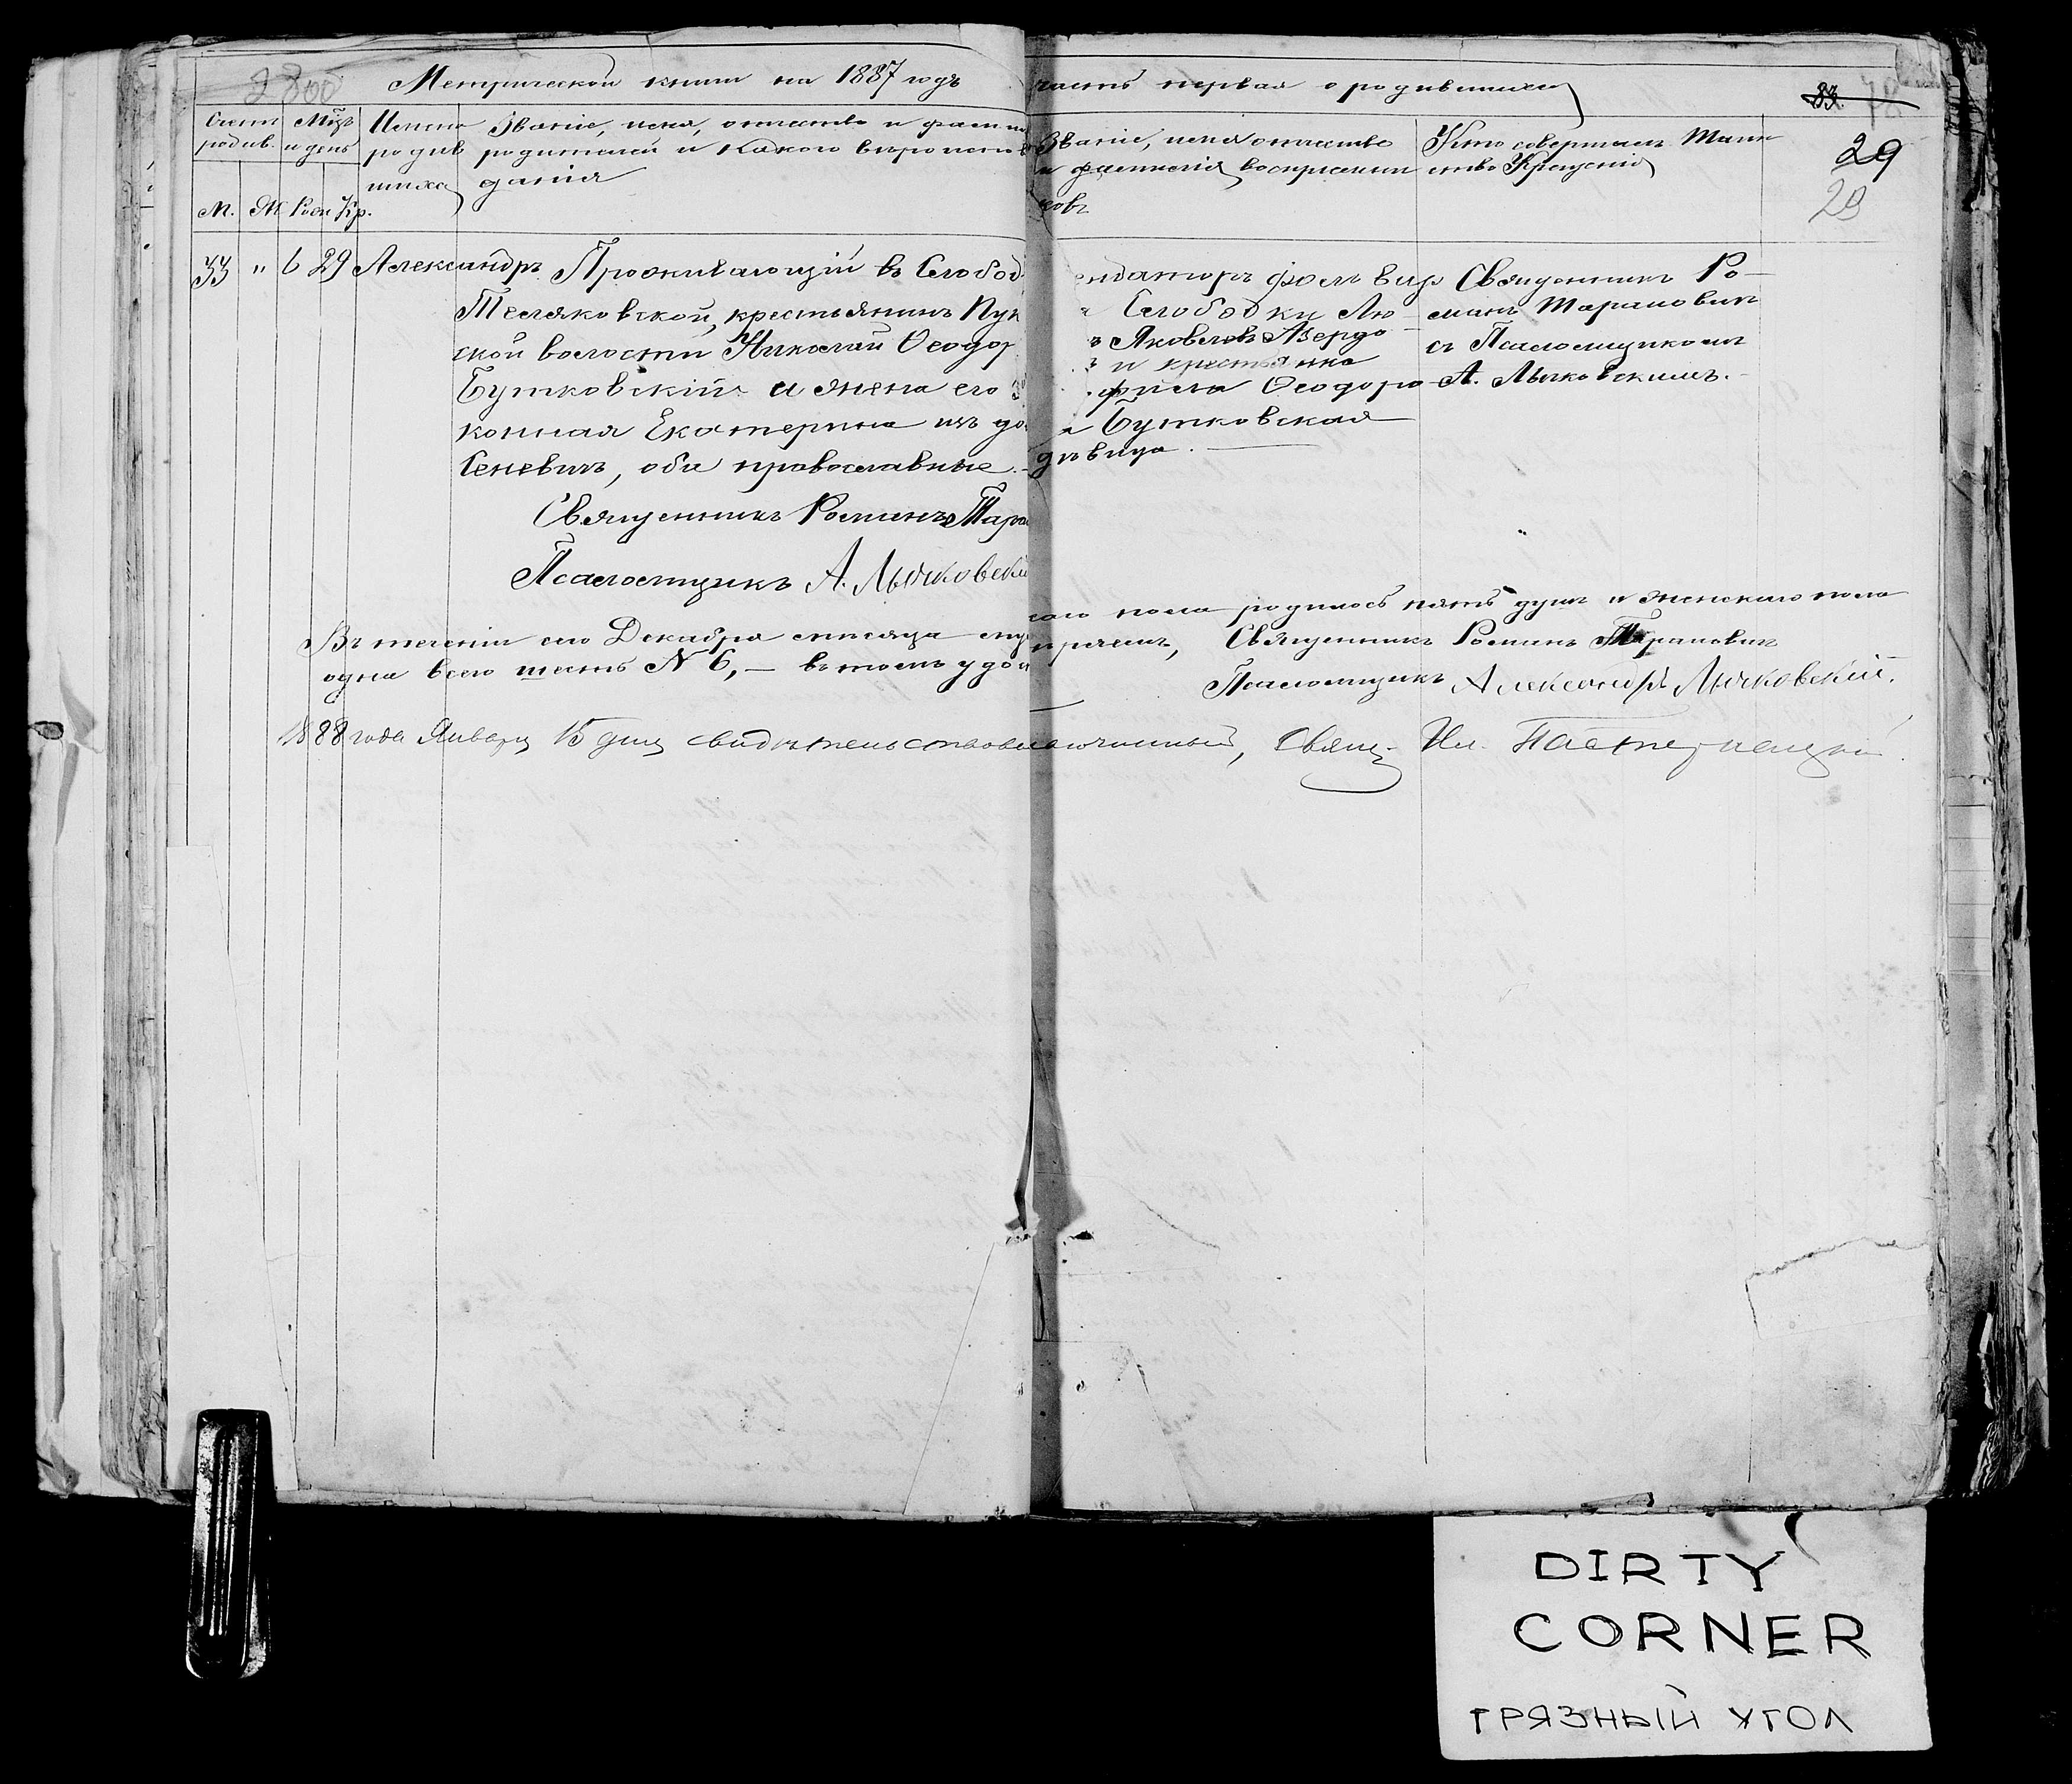 2800
Метрической книги на 1887 годъ
часть первая о родившихся
83.
29
29
Счетъ родив.
Мѣць и день
Имена родившихся
Званіе, имя, отчество и фамил
родителей и какого вѣроиспов
данія
Званіе, имя отчество
и фамилія воспріемни
ковъ
Кто совершалъ Таин
ство Крещенія
М. Ж. Рож Кр.
33 " 6 29 Александръ Проживающій въ Слобод
Тесляковской, крестьянинъ Пук
ской волости Николай Ѳеодор
Бутковскій и жена его з
конная Екатерина изъ до
Сеневичъ, оба православные.
ендаторъ фольвар
Слободки Лю-
Яковлевъ Авердо
и крестьянка
фила Ѳеодоро-
а Бутковская
дѣвица.
Священникъ Ро-
манъ Тарановичъ
съ Псаломщикомъ
А. Лычковскимъ.
Священникъ Романъ Тара
Псаломщикъ А. Лычковскі
Въ теченіи сего Декабря мѣсяца му
каго пола родилось пять душъ и женскаго пола
одна всего шесть № 6, — въ томъ удо
Священникъ Романъ Тарановичъ
Псаломщикъ Александръ Лычковскій.
1888 года Января 15 дня свидѣтельствовалъ
Свящ. Ил.
DIRTY
CORNER
ГРЯЗНЫЙ УГОЛ